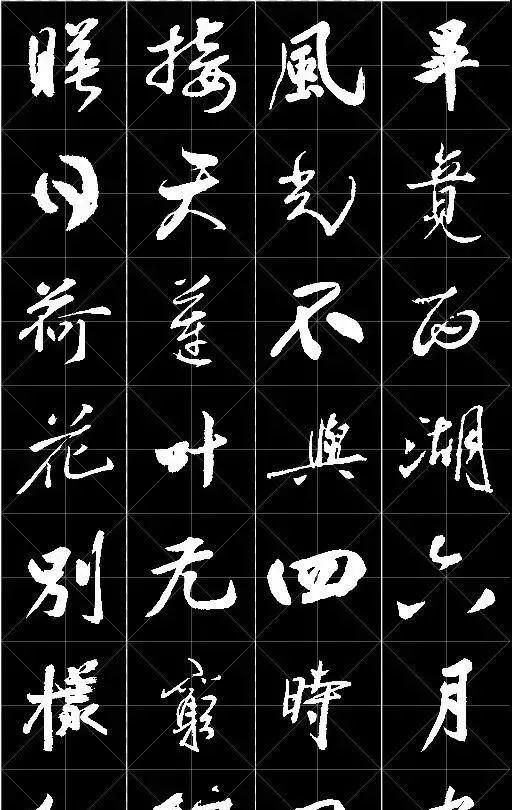 畢竟西湖六月
風光不與四時
接天蓮叶无窮
暎日荷花別樣